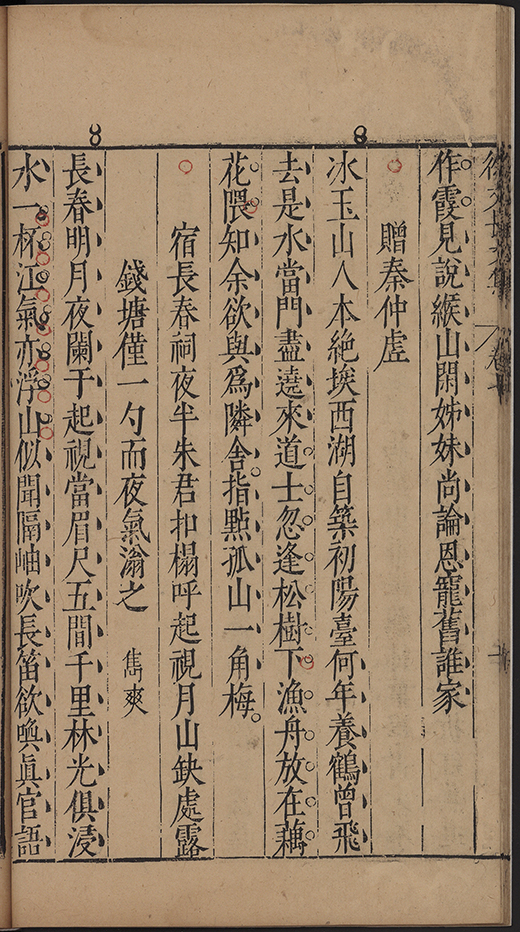 徐文長文集 卷七
作霞見說緱山閑姊妹尚論恩寵舊誰家
贈秦仲虗
冰玉山人本絕埃西湖自築初陽臺何年養鶴曾飛
去是水當門盡遶來道士忽逢松樹下漁舟放在藕
花隈知余欲與爲隣舍指㸃孤山一角梅
宿長春祠夜半朱君扣榻呼起視月山缺處露
錢塘僅一勺而夜氣滃之 雋爽
長春明月夜闌干起視當眉尺五間千里林光俱浸
水一杯江氣亦浮山似聞隔岫吹長笛欲喚眞官語